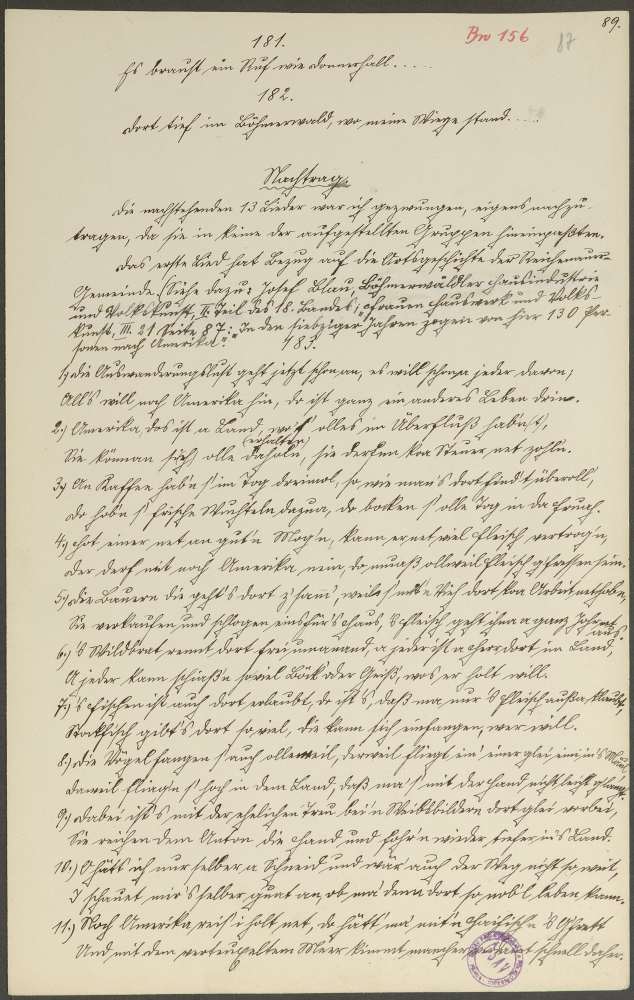 89.
Bw 156
87
181.
Es braust ein Ruf wie Donnerhall.....
182.
Dort tief im Böhmerwald, wo meine Wiege stand....
Nachtrag.
Die nachstehenden 13 Lieder war ich gezwungen, eigens nachzu-
tragen, da sie in keine der aufgestellten Gruppen hineinpaßten.
Das erste Lied hat Bezug auf die Ortsgeschichte der
Gemeinde. (Siehe dazu: Josef Blau, Böhmerwäldler Hausindustrie
und Volkskunst, II. Teil des 18. Bandes: Frauen Hauswerk und Volks-
kunst, III. 21. Seite 87: "In den siebziger Jahren zogen von hier 130 Per-
sonen nach Amerika."
183.
1.) Die Auswanderungslust geht jetzt schon an, es will schon a jeder davon,
Alls will nach Amerika hin, do ist ganz ein anderes Leben drin.
2.) Amerika, dos ist a Land, wo s' olles im Überfluß hab'nt,
(erhalten)
Sie können sich olle, sie derfen koa Steuer net zohln.
3.) An Kaffee hab'n s' im Tog dreimol, so, wie man's dort find't überoll,
Do hob'n s' frische Wuchteln dazua, do backen s' olle Tog in da Fruah.
4.) Hot einer net an gut'n Mog'n, kann er net viel Fleisch vertrog'n,
Der derf nit noch Amerika nein, do muaß ollweil Fleisch g'fressen sein.
5.) Die Bauern die geht's dort z'sam, weil s' mit'n Vieh dort koa Arbeit net hobn,
Sie verkaufen und schlogen eins für's Haus, 's Fleisch geht ihna a ganz Johr net
aus.
6.) 's Wildbrat rennt dort frei umanand, a jeder ist a Herr dort im Land,
A jeder kann schiaß'n soviel Böck oder Geiß, wos er holt will.
7.) 's Fischen ist auch dort erlaubt, do ist's, daß ma nur 's Fleisch außa klaubt,
Stockfisch gibt's dort so viel, die kann sich einfangen, wer will.
8.) Die Vögel fangen s' auch olleweil, derweil fliegt ein' einer glei eini in's Maul,
Daweil fliag'n s' hoch in dem Land, daß ma s' mit der Hand nicht leicht g'langt.
9.) Dabei ist's mit der ehelichen Treu bei'n Weibsbildern dort glei vorbei,
Sie reichen dem Anton die Hand und fohr'n wieder tiefer in's Land.
10.) O hätt' ich nur selber a Schneid und wär auch der Weg nicht so weit,
I schauet mir's selber guat an, ob ma denn dort so nob'l leben kann.
11.) Noch Amerika reis' i holt net, do hätt' ma mit'n Häusch'n 's G'frett
Und mit dem verteufelten Meer kimmt mancher net schnell daher.